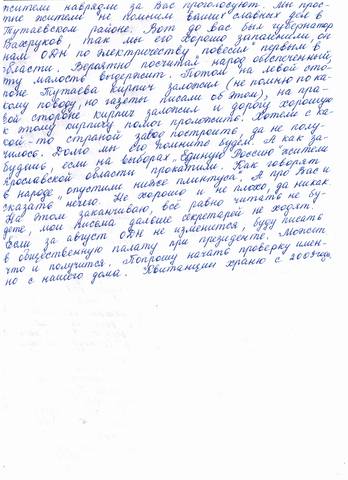 жители наврядли за Вас проголосуют. Мы прос-
тые жители не помним ваших славных дел в
Тутаевском районе. Вот до вас был губернатор
Вахруков, так мы его хорошо запомнили, он
нам ОДН по электричеству "повесил" первым в
области. Вероятно посчитал народ обеспеченный,
малость выдержит. Потом на левой сто-
роне Тутаева кирпич заложил (не помню по ка-
кому поводу, но газеты писали об этом), на пра-
вой стороне кирпич заложил и дорогу хорошую
к этому кирпичу помог проложить. Хотели с ка-
кой-то страной завод построить, да не полу-
чилось. Долго мы его помнить будем. А как за-
будишь, если на выборах "Единую Россию" жители
Ярославской области "прокатили". Как говорят
в народе "опустили ниже плинтуса". А про Вас и
сказать нечего. Не хорошо и не плохо, да никак.
На этом заканчиваю, всё равно читать не бу-
дете, мои письма дальше секретарей не ходят.
Если за август ОДН не изменится, буду писать
в общественную палату при президенте. Может
что и получится. Попрошу начать проверку имен-
но с нашего дома. Квитанции храню с 2008 года